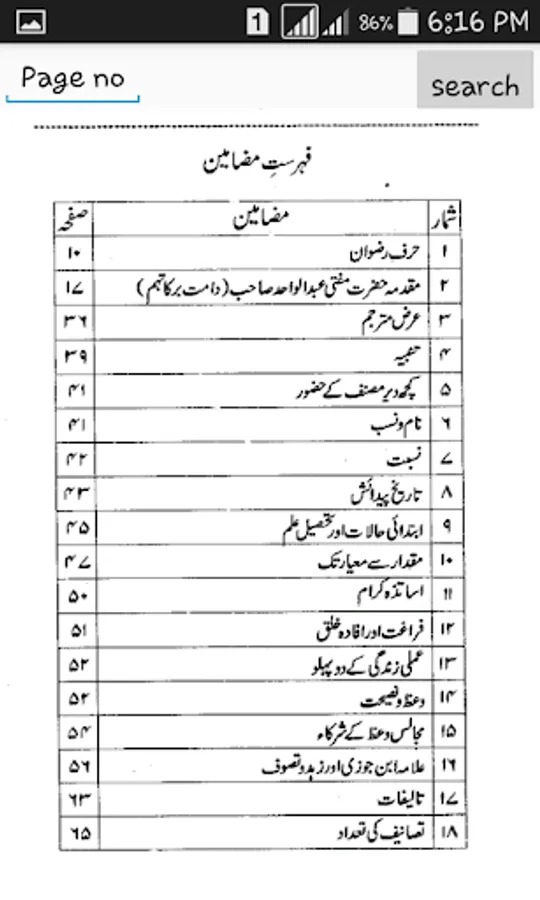 1 86% 6:16 PM
Page no search
فہرستِ مضامین
شمار مضامین صفحہ
۱ حرف رضوان ۱۰
۲ مقدمہ حضرت مفتی عبدالواحد صاحب (دامت برکاتہم) ۱۷
۳ عرض مترجم ۳۶
۴ تنبیہ ۳۹
۵ کچھ دیر مصنف کے حضور ۴۱
۶ نام و نسب ۴۱
۷ نسبت ۴۲
۸ تاریخ پیدائش ۴۳
۹ ابتدائی حالات اور تحصیل علم ۴۵
۱۰ مقدار سے معیار تک ۴۷
۱۱ اساتذہ کرام ۵۰
۱۲ فراغت اور افادہ خلق ۵۱
۱۳ عملی زندگی کے دو پہلو ۵۲
۱۴ وعظ و نصیحت ۵۲
۱۵ مجالس وعظ کے شرکاء ۵۴
۱۶ علامہ ابن جوزی اور زہد و تصوف ۵۶
۱۷ تالیفات ۶۳
۱۸ تصانیف کی تعداد ۶۵